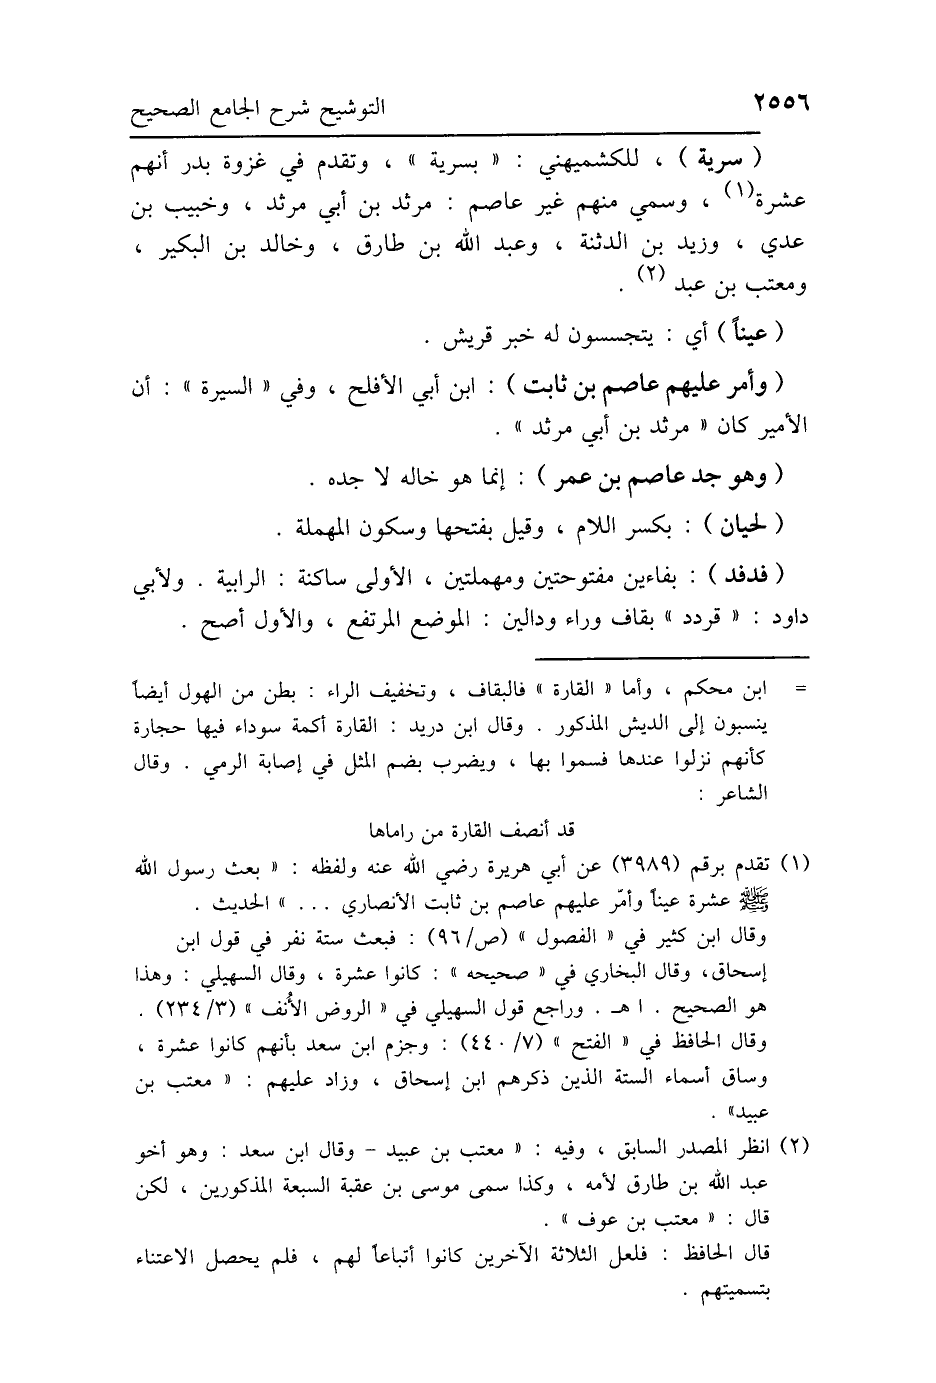 ٢٥٥٦ التوشيح شرح الجامع الصحيح
( سرية ) ، للكشميهني : « بسرية » ، وتقدم في غزوة بدر أنهم
عشرة(١) ، وسمي منهم غير عاصم : مرثد بن أبي مرثد ، وخبيب بن
عدي ، وزيد بن الدثنة ، وعبد الله بن طارق ، وخالد بن البكير ،
ومعتب بن عبد (٢) .
( عيناً ) أي : يتجسسون له خبر قريش .
( وأمر عليهم عاصم بن ثابت ) : ابن أبي الأفلح ، وفي « السيرة » : أن
الأمير كان « مرثد بن أبي مرثد » .
( وهو جد عاصم بن عمر ) : إنما هو خاله لا جده .
( لحيان ) : بكسر اللام ، وقيل بفتحها وسكون المهملة .
( فدفد ) : بفاءين مفتوحتين ومهملتين ، الأولى ساكنة : الرابية . ولأبي
داود : « قردد » بقاف وراء ودالين : الموضع المرتفع ، والأول أصح .
= ابن محكم ، وأما « القارة » فالبقاف ، وتخفيف الراء : بطن من الهول أيضاً
ينسبون إلى الديش المذكور . وقال ابن دريد : القارة أكمة سوداء فيها حجارة
كأنهم نزلوا عندها فسموا بها ، ويضرب بضم المثل في إصابة الرمي . وقال
الشاعر :
قد أنصف القارة من راماها
(١) تقدم برقم (٣٩٨٩) عن أبي هريرة رضي الله عنه ولفظه : « بعث رسول الله
ﷺ عشرة عيناً وأمّر عليهم عاصم بن ثابت الأنصاري ... » الحديث .
وقال ابن كثير في « الفصول » (ص/٩٦) : فبعث ستة نفر في قول ابن
إسحاق، وقال البخاري في « صحيحه » : كانوا عشرة ، وقال السهيلي : وهذا
هو الصحيح . ا هـ . وراجع قول السهيلي في « الروض الأُنف » (٢٣٤/٣) .
وقال الحافظ في « الفتح » (٤٤٠/٧) : وجزم ابن سعد بأنهم كانوا عشرة ،
وساق أسماء الستة الذين ذكرهم ابن إسحاق ، وزاد عليهم : « معتب بن
عبيد» .
(٢) انظر المصدر السابق ، وفيه : « معتب بن عبيد – وقال ابن سعد : وهو أخو
عبد الله بن طارق لأمه ، وكذا سمى موسى بن عقبة السبعة المذكورين ، لكن
قال : « معتب بن عوف » .
قال الحافظ : فلعل الثلاثة الآخرين كانوا أتباعاً لهم ، فلم يحصل الاعتناء
بتسميتهم .